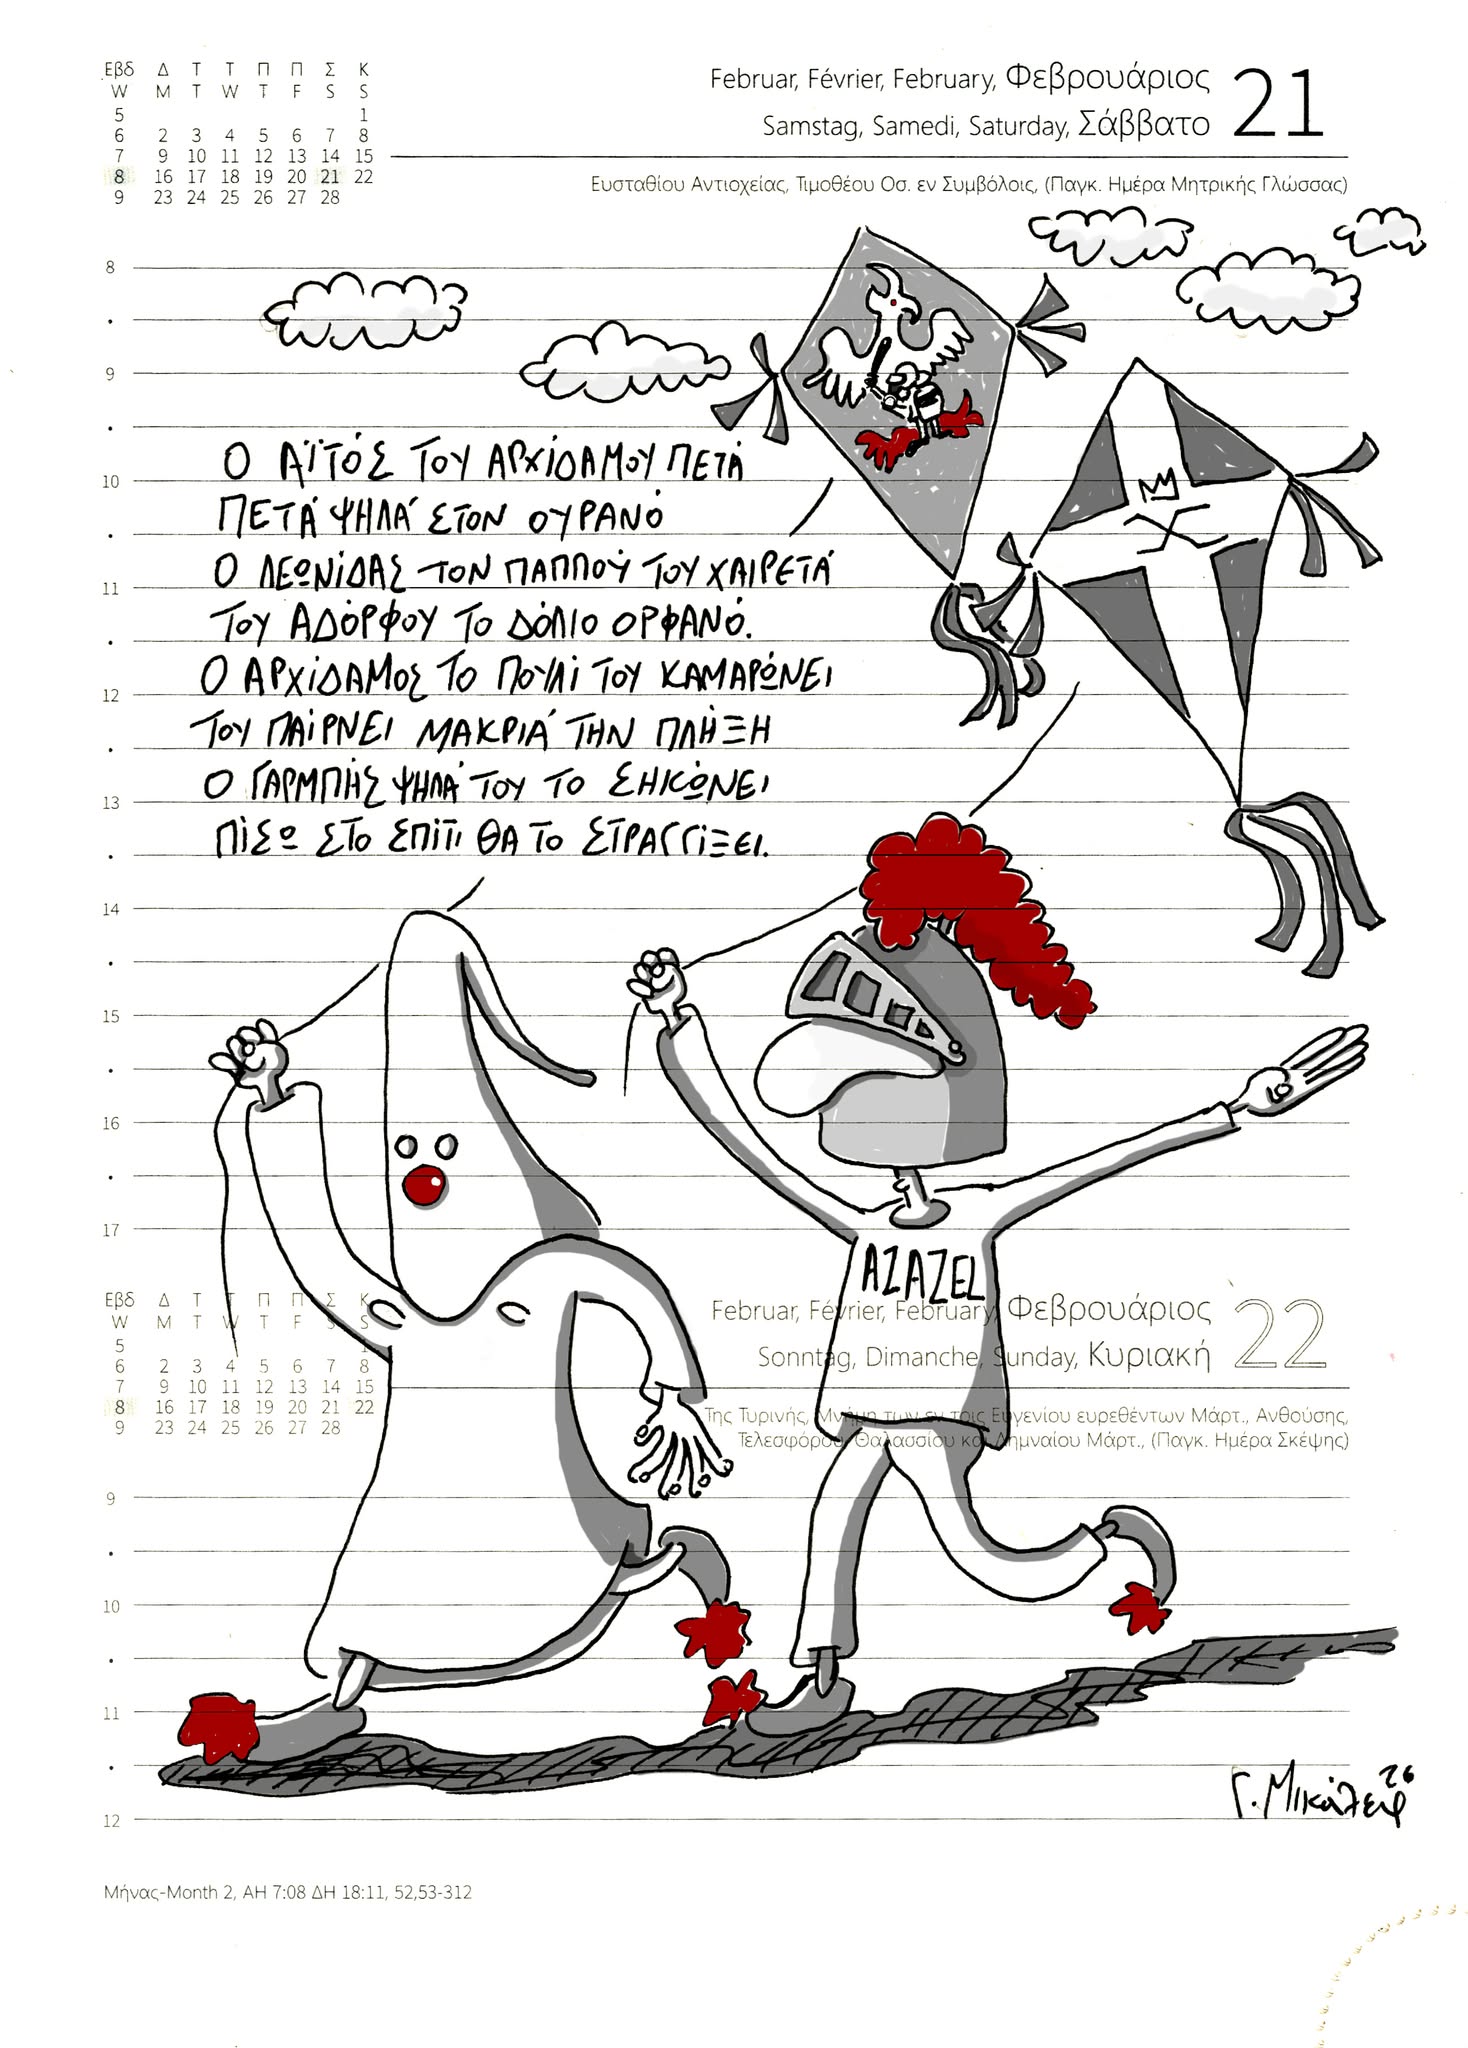 Εβδ Δ Τ Τ Π Π Σ Κ
W M T W T F S S
5 1
6 2 3 4 5 6 7 8
7 9 10 11 12 13 14 15
8 16 17 18 19 20 21 22
9 23 24 25 26 27 28
Februar, Février, February, Φεβρουάριος 21
Samstag, Samedi, Saturday, Σάββατο
Ευσταθίου Αντιοχείας, Τιμοθέου Οσ. εν Συμβόλοις, (Παγκ. Ημέρα Μητρικής Γλώσσας)
8
9
10
11
12
13
14
15
16
17
Ο ΑΪΤΌΣ ΤΟΥ ΑΡΧΙΔΆΜΟΥ ΠΕΤΆ
ΠΕΤΆ ΨΗΛΆ ΣΤΟΝ ΟΥΡΑΝΌ
Ο ΛΕΩΝΊΔΑΣ ΤΟΝ ΠΑΠΠΟΎ ΤΟΥ ΧΑΙΡΕΤΆ
ΤΟΥ ΑΔΌΡΦΟΥ ΤΟ ΔΌΛΙΟ ΟΡΦΑΝΌ.
Ο ΑΡΧΊΔΑΜΟΣ ΤΟ ΠΟΥΛΊ ΤΟΥ ΚΑΜΑΡΏΝΕΙ
ΤΟΥ ΠΑΊΡΝΕΙ ΜΑΚΡΙΆ ΤΗΝ ΠΛΉΞΗ
Ο ΓΑΡΜΠΉΣ ΨΗΛΆ ΤΟΥ ΤΟ ΣΗΚΏΝΕΙ
ΠΊΣΩ ΣΤΟ ΣΠΊΤΙ ΘΑ ΤΟ ΣΤΡΑΓΓΊΞΕΙ.
AZAZEL
Εβδ Δ Τ Τ Π Π Σ Κ
W M T W T F S S
5 1
6 2 3 4 5 6 7 8
7 9 10 11 12 13 14 15
8 16 17 18 19 20 21 22
9 23 24 25 26 27 28
Februar, Février, February, Φεβρουάριος 22
Sonntag, Dimanche, Sunday, Κυριακή
Της Τυρινής, Μνήμη των εν τοις Ευγενίου ευρεθέντων Μάρτ., Ανθούσης,
Τελεσφόρου, Θαλασσίου και Λημναίου Μάρτ., (Παγκ. Ημέρα Σκέψης)
9
10
11
12
Γ. Μικάλεφ 26
Μήνας-Month 2, ΑΗ 7:08 ΔΗ 18:11, 52,53-312